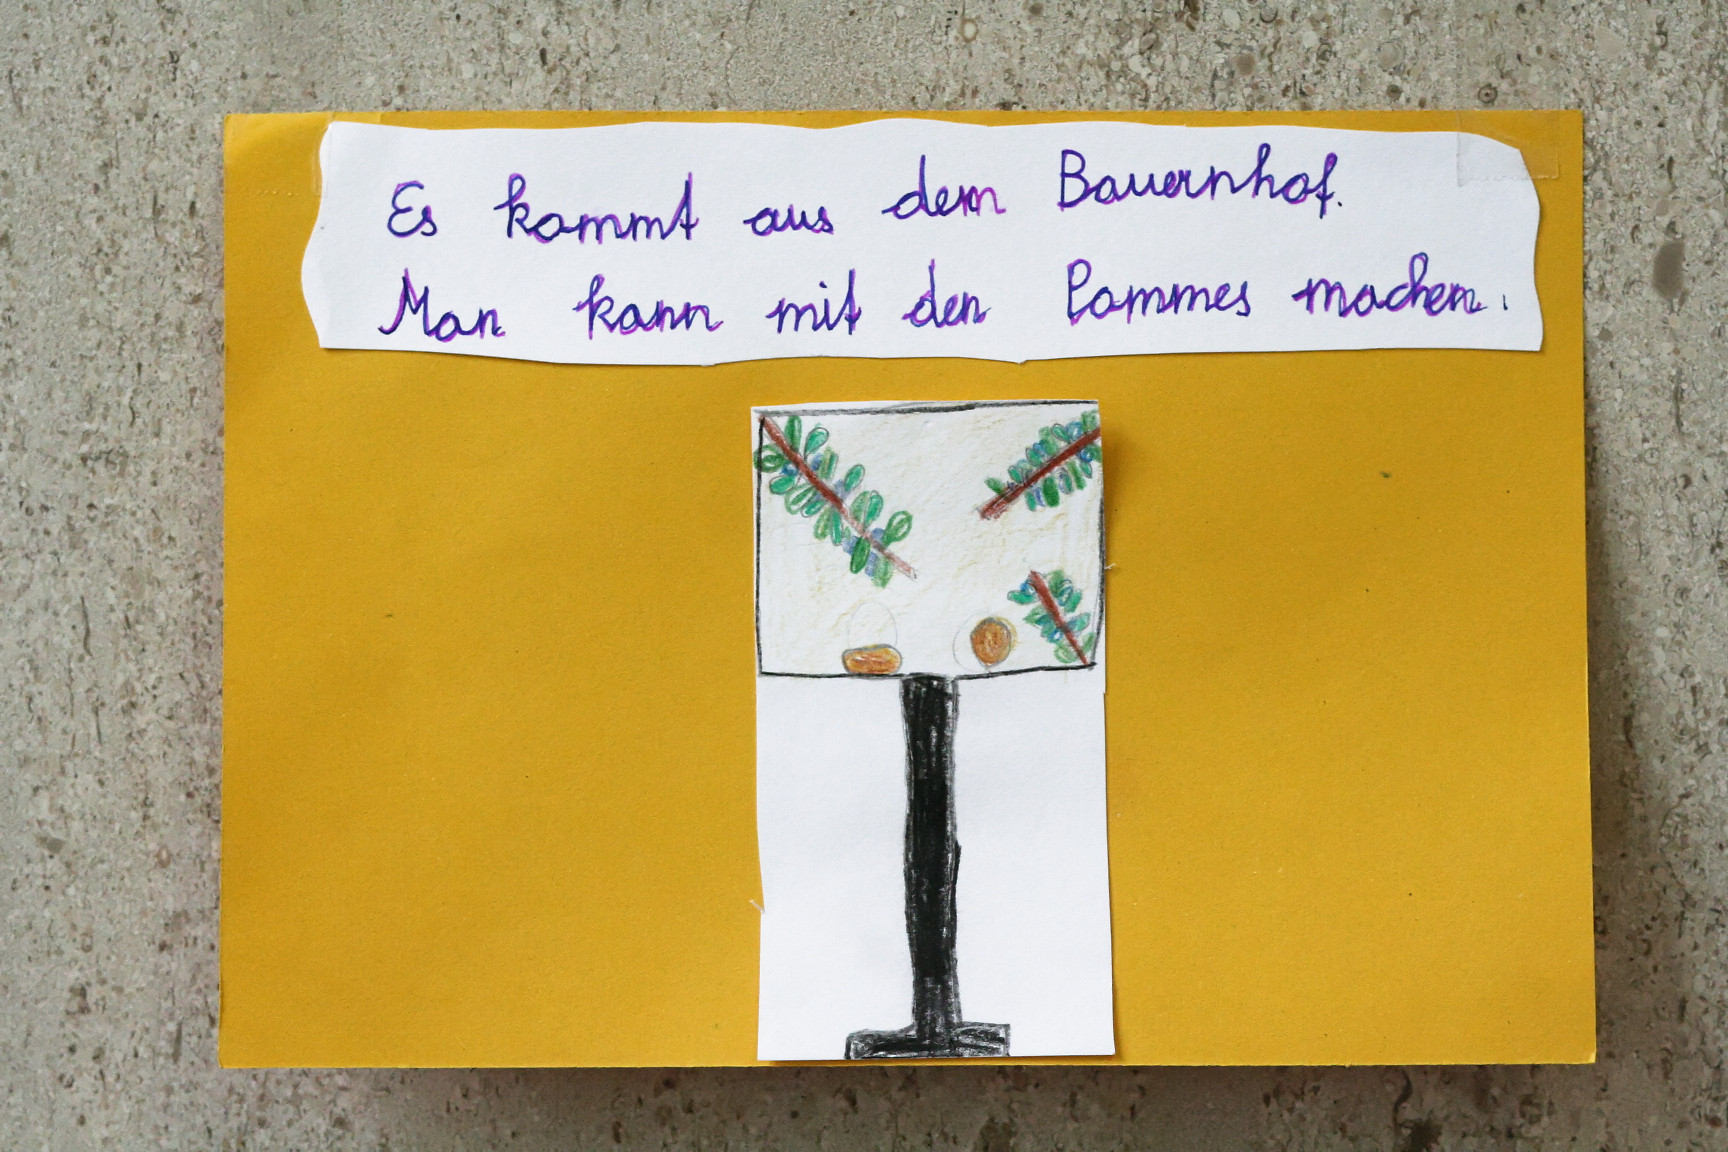 Es kommt aus dem Bauernhof.
Man kann mit den Pommes machen.